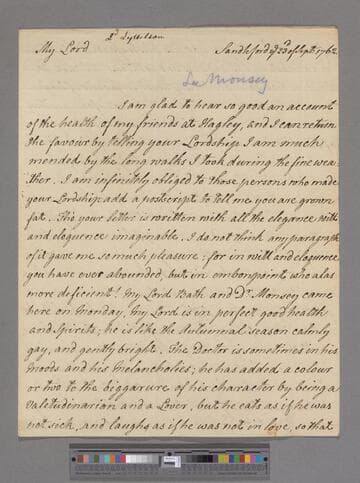 Ld Lyttelton
My Lord Sandleford ye 23d of Sept. 1762
Dr Monsey
I am glad to hear so good an account
of the health of my friends at Hagley, and I can return
the favour by telling your Lordship I am much
mended by the long walks I took during the fine wea-
ther. I am infinitely obliged to those persons who made
your Lordship add a postscript to tell me you are grown
fat. Tho your letter is written with all the elegance, witt
and eloquence imaginable, I do not think any paragraph
of it gave me so much pleasure; for in witt and eloquence
you have ever abounded, but in embonpoint who alas
more deficient! My Lord Bath and Dr. Monsey came
here on Monday, My Lord is in perfect good health
and Spirits; he is like the Autumnal season calmly
gay, and gently bright. The Doctor is sometimes in his
moods and his melancholies; he has added a colour
or two to the biggarure of his character by being a
Valetudinarian and a Lover, but he eats as if he was
not sick, and laughs as if he was not in love, so that